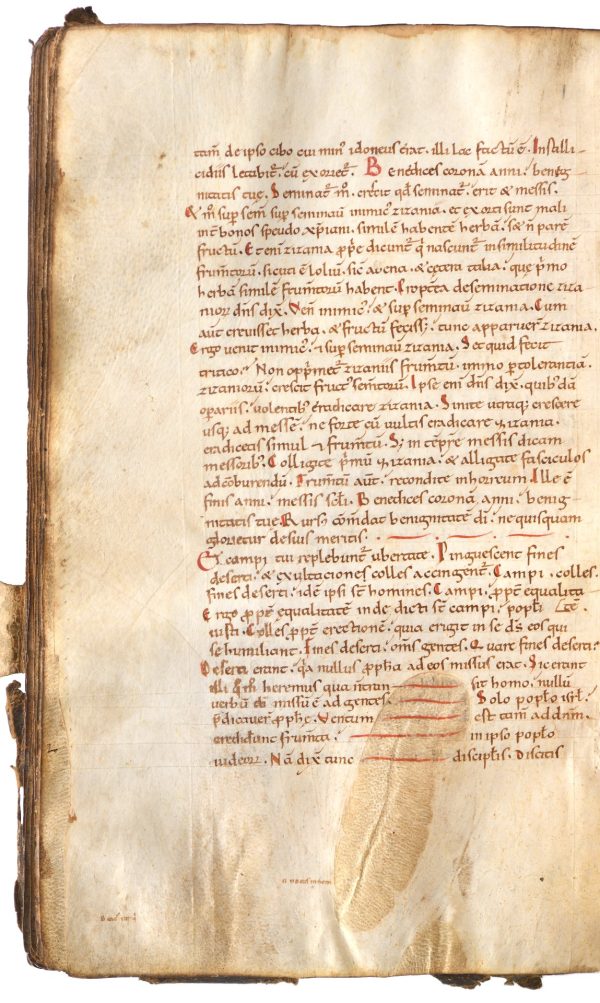 tam̅ de ipso cibo cui min᾽ idoneus erat. illi loc factu̅ e̅. Instilli-
cidiis letabit᷑. cu̅ exoriet᷑. Benedices corona̅ anni. benig-
nitatis tuę. Seminat᷑ m̊. crescit qđ seminat᷑. erit & messis.
& m̊ sup̱ sem̅ sup̱ seminauit inimic᾽ zizania. et exorti sunt mali
int̅ bonos pseudo xp̅iani. simile̅ habentes herba̅. sƺ n̅ pare̅
fructu̅. Eteni̅ zizania p̱p̱e dicunt᷑ q᷑ nascunt᷑ insimilitudine̅
frumtoru̅. sicuti e̅ loliu̅. sic᷑ auena. & cętera talia. quę p᷑mo
herba̅ simile̅ frum̅toru̅ habent. Propterea deseminatione ziza-
nior᷑ dn̅s dix᷑. Ven̅ inimic᾽. & sup̱ seminauit zizania. Cum
aut̅ creuisset herba. & fructu̅ fecissƺ. tunc apparuer̅ zizania.
Ergo uenit inimic᾽. & sup̱ seminauit zizania. Set quid fecit
tritico? Non opp᷑met᷑ zizaniis frumtu̅. immo p̱ tolerantia̅.
zizanioru̅. crescit fruct᾽ sem̅toru̅. Ipse eni̅ dn̅s dix᷑. quibᷤda̅
operariis. uolentibᷤ eradicare zizania. Sinite utraqƺ crescere
usqƺ ad messe̅. ne forte cu̅ uultis eradicare zizania.
eradicetis simul & frum̅tu̅. Sƺ in te̅p̱re messis dicam
messoribᷤ. Colligite p᷑mu̅ zizania. & alligate fasciculos
adco̅burendu̅. Frumtu̅ aut̅. recondite inhorreum. Ille e̅
finis anni. messis sc̅li. Benedices corona̅ anni. benig-
nitatis tuę. Rursu̅ co̅mdat benignitate̅ dī. nequisquam
glorietur desuis meritis.
Et campi tui replebunt᷑ ubertate. Pinguescent fines
deserti. & exultaciones colles accingent᷑. Campi. colles.
fines deserti. ide̅ ipsi st̅ homines. Campi. p̱pt̅ equalita-
Ergo p̱pt̅ ęqualitate̅ inde dicti st̅ campi. popli te̅.
iusti. Colles p̱pt̅ erectione̅. quia erugit in se d̅s eos qui
se humiliant. Fines deserti. om̅s gentes. Quare fines deserti?
Deserti erant. q᷑a nullus p̱ph̅a ad eos missus erat. Sic erant
illi q᷑m̊ heremus qua n̅ trans- sit homo. nullu̅
uerbu̅ dī missu̅ e̅ ad gentes. Solo poplo isrł.
p᷑dicauer̅ p̱phę. Ventum est tam̅ ad dn̅m.
crediderunt frumta. in ipso poplo
iudeor᷑. Na̅ dix᷑ tunc discipłis. Dicitis